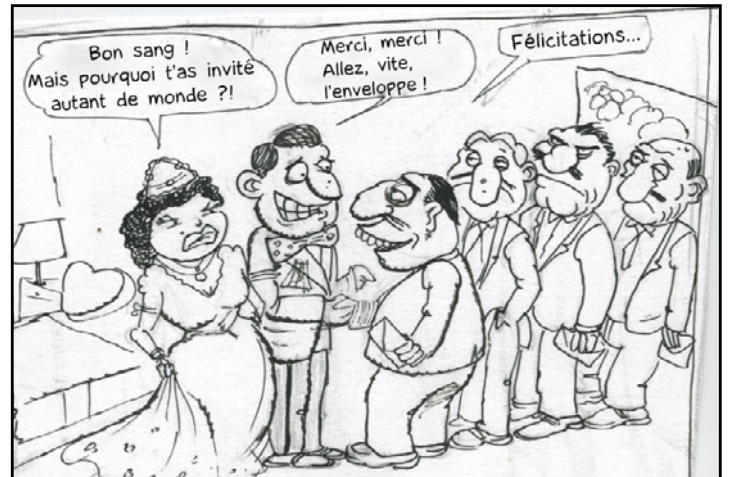 Bon sang !
Mais pourquoi t'as invité
autant de monde ?!
Merci, merci !
Allez, vite,
l'enveloppe !
Félicitations...